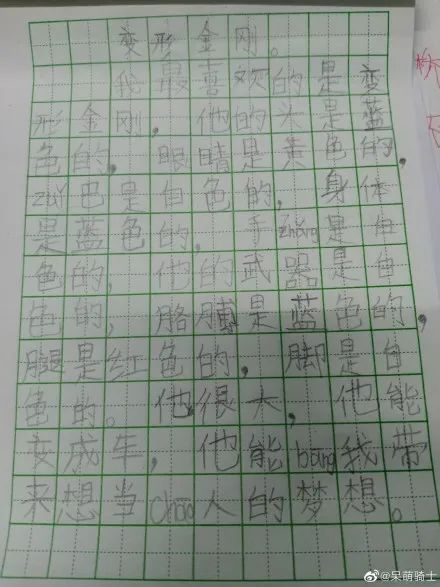 变形金刚。
我最喜欢的是变
形金刚，他的头是蓝
色的，眼睛是黄色的，
zuǐ巴是白色的，身体
是蓝色的，手zhǎng是白
色的，他的武器是白
色的，胳膊是蓝色的，
腿是红色的，脚是白
色的。他很大，他能
变成车，他能bāng我带
来想当chāo人的梦想。
@呆萌骑士